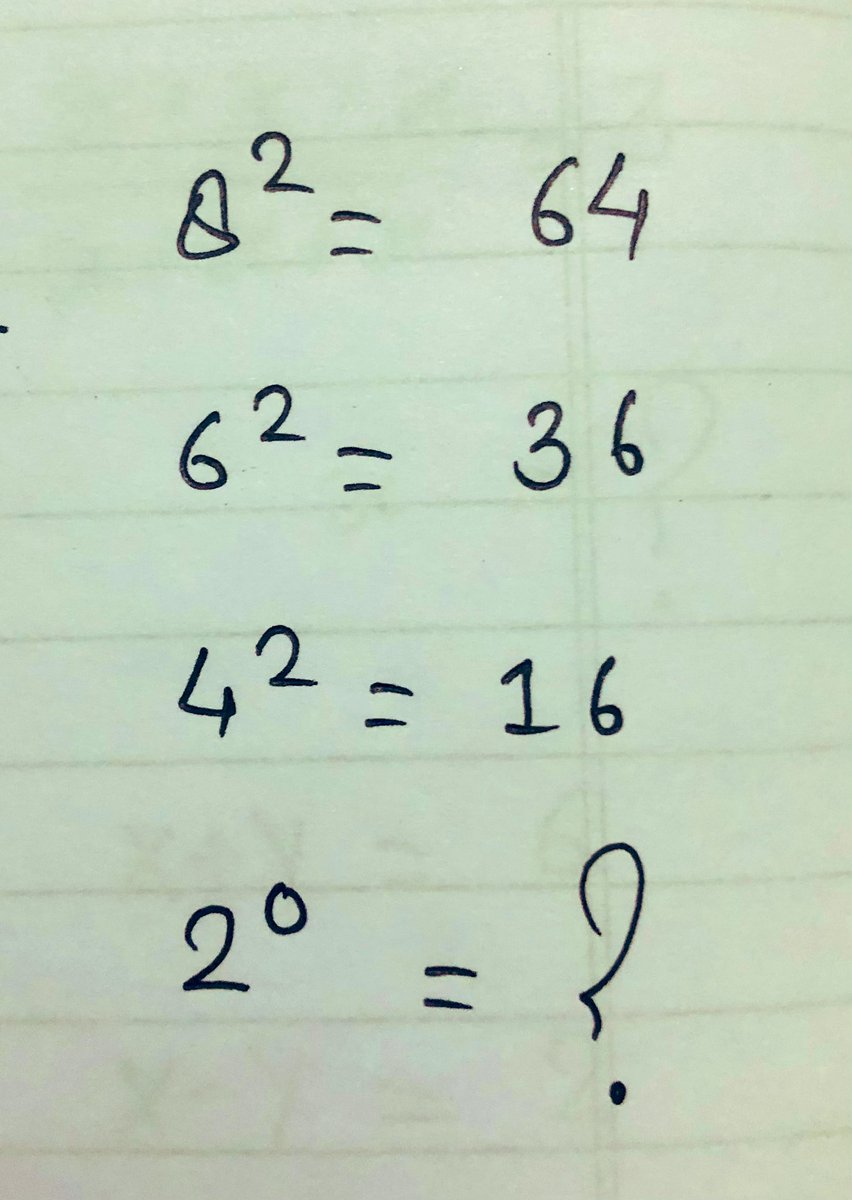 8² = 64
6² = 36
4² = 16
2⁰ = ?